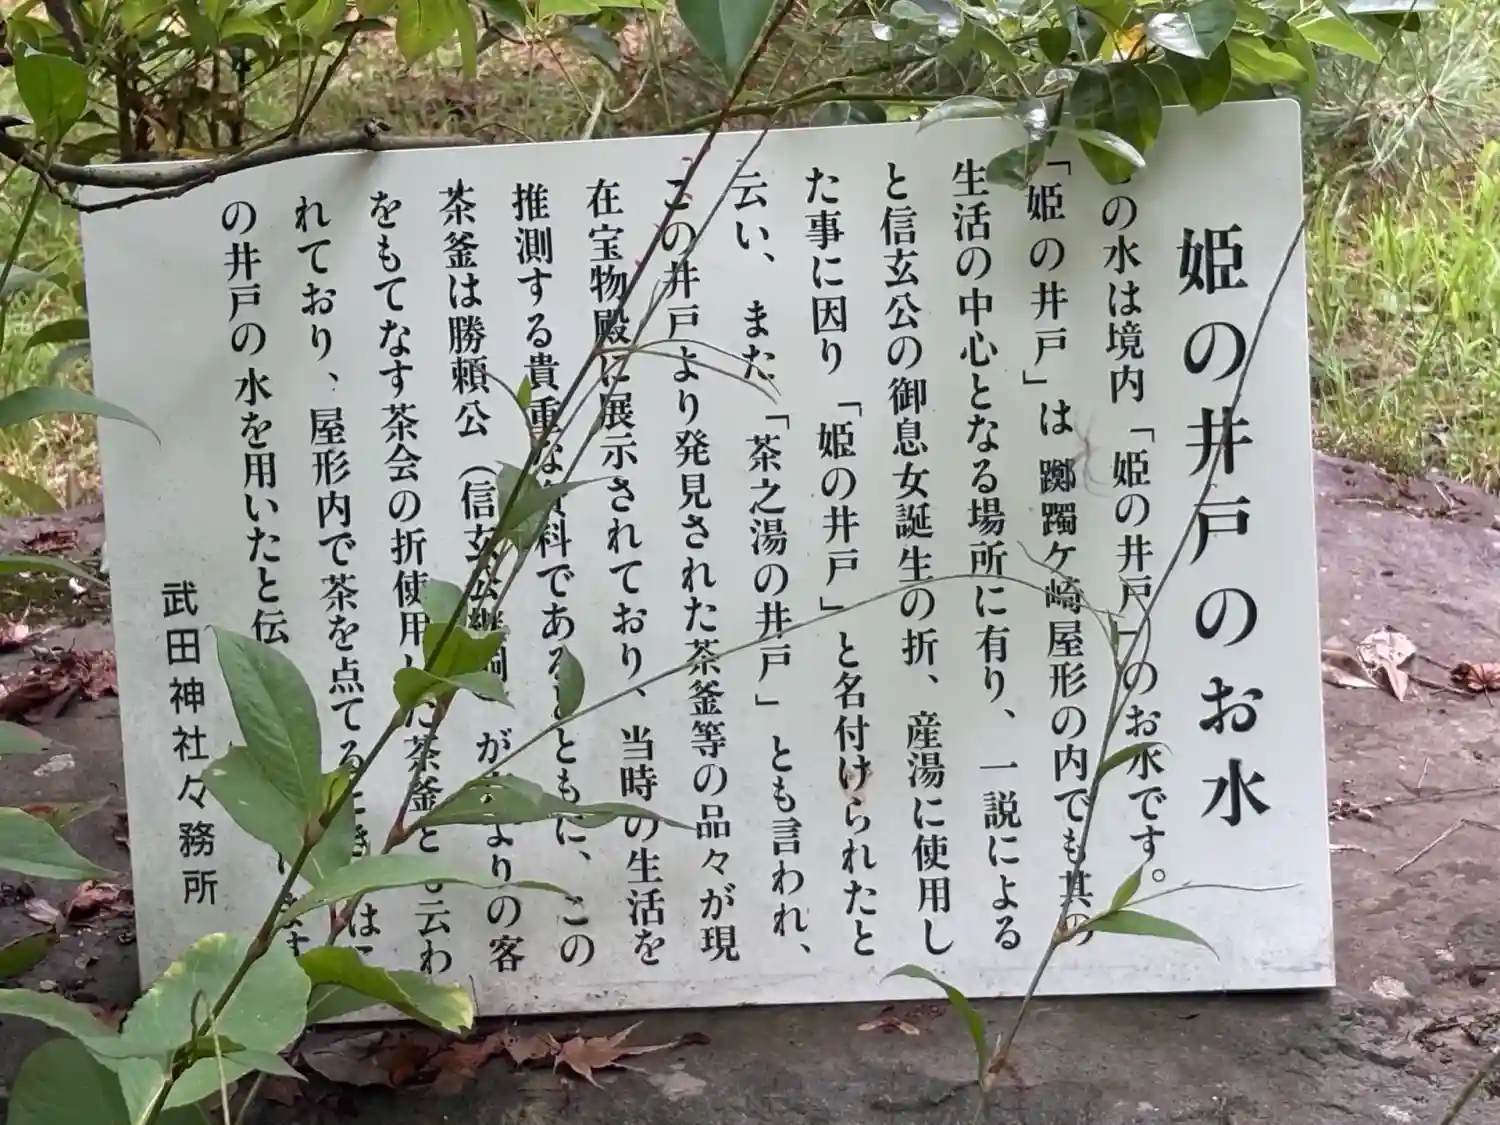 姫の井戸のお水
の水は境内「姫の井戸」のお水です。
「姫の井戸」は躑躅ケ崎屋形の内でも其の
生活の中心となる場所に有り、一説による
と信玄公の御息女誕生の折、産湯に使用し
た事に因り「姫の井戸」と名付けられたと
云い、また「茶之湯の井戸」とも言われ、
この井戸より発見された茶釜等の品々が現
在宝物殿に展示されており、当時の生活を
推測する貴重な資料であるとともに、この
茶釜は勝頼公（信玄公 が よりの客
をもてなす茶会の折使用した茶釜と 云わ
れており、屋形内で茶を点てるときは
の井戸の水を用いたと伝
武田神社々務所